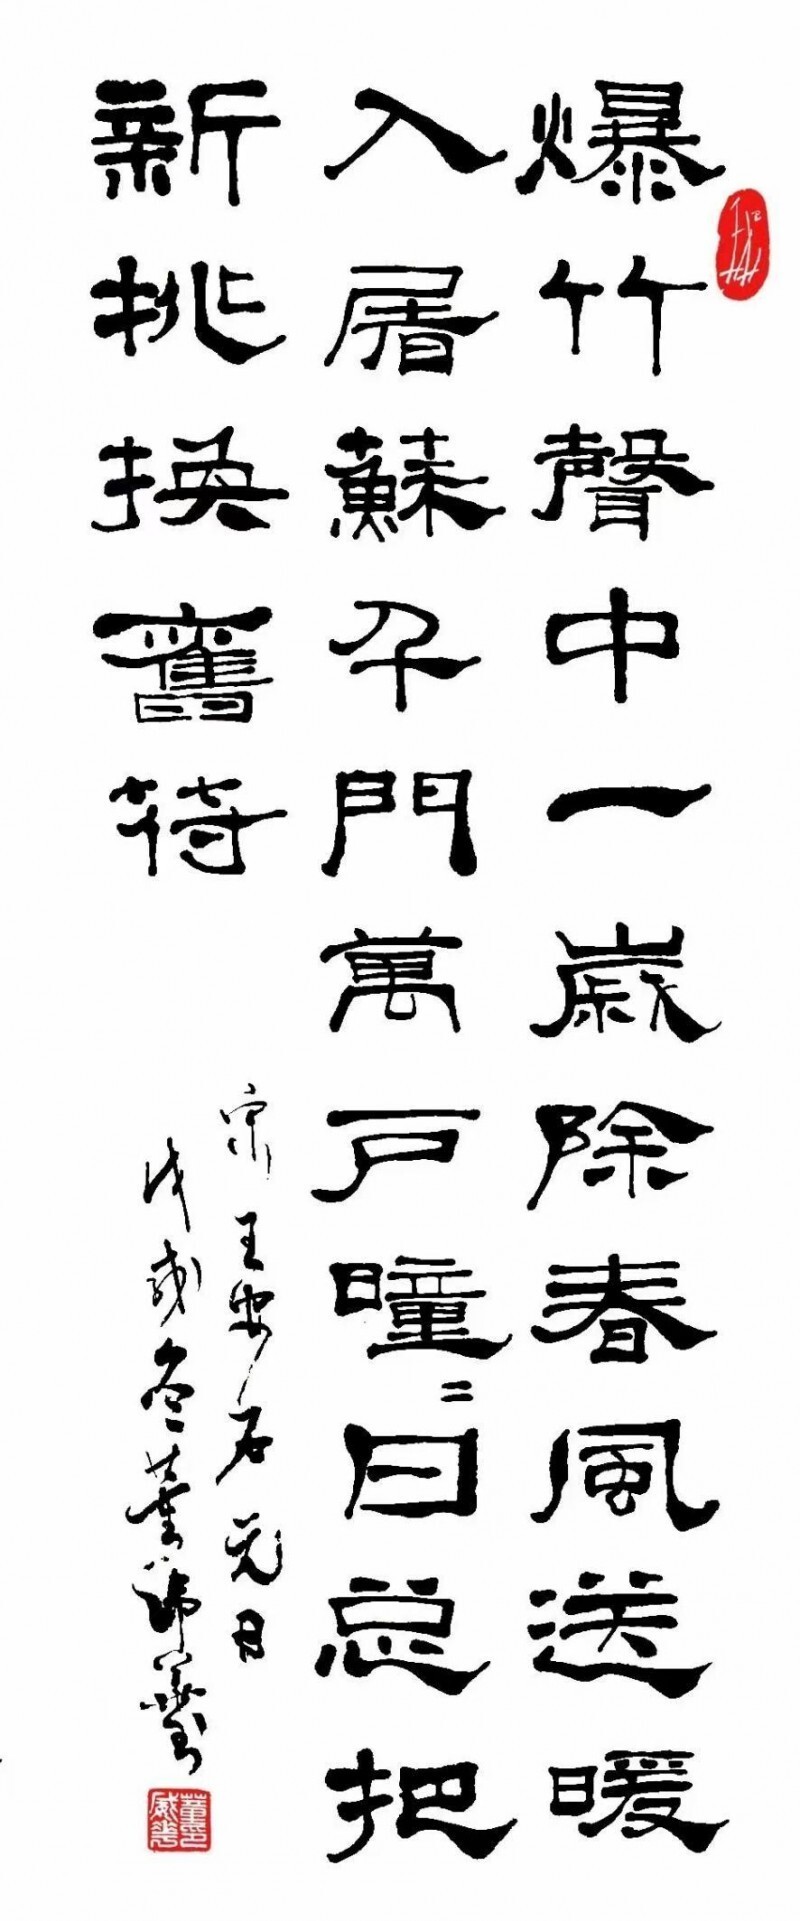 爆竹聲中一歲除春風送暖
入屠蘇千門萬戶曈〻日总把
新挑換舊符
宋王安石元日
戊戌冬董